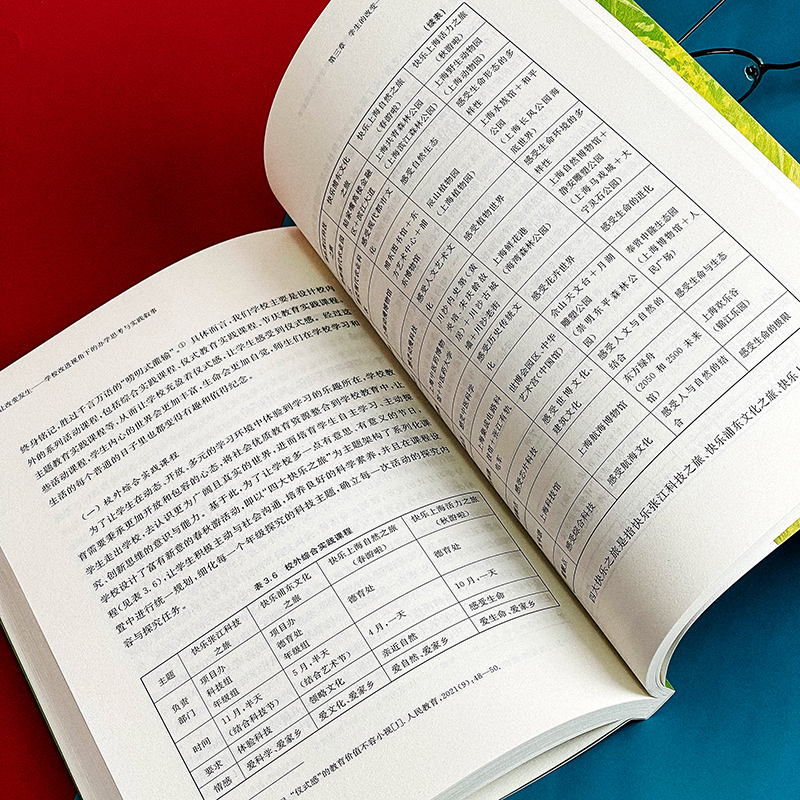 让改变发生——学校改进视角下的办学思考与实践叙事
终身铭记,胜过千言万语的“唠叨式灌输”。① 具体而言,我们学校主要是设计校内
外的系列活动课程,包括综合实践课程、仪式教育实践课程、节庆教育实践课程、
主题教育实践课程等,从而让学校充盈着仪式感,让学生感受到仪式感。经过这
些活动课程,学生内心的世界会更加丰富,生命会更加自觉,师生们在学校学习和
生活的每个普通的日子里也都变得有趣和值得纪念。
(一) 校外综合实践课程
为了让学生在动态、开放、多元的学习环境中体验到学习的乐趣所在,学校教
育需要秉承更加开放和包容的心态,将社会优质教育资源整合到学校教育中,让
学生走出学校,去认识更为广阔且真实的世界,进而培育学生自主学习、主动探
究、创新思维的意识与能力。基于此,为了让学校多一点有意思、有意义的节日,
学校设计了富有新意的春秋游活动,即以“四大快乐之旅”为主题架构了系列化课
程(见表3.6),让学生积极主动与社会沟通,培养良好的科学素养,并且在课程设
置中进行统一规划,细化每一个年级探究的科技主题,确立每一次活动的探究内
容与探究任务。
表 3.6 校外综合实践课程
主题 快乐张江科技之旅 快乐浦东文化之旅 快乐上海自然之旅(春游啦) 快乐上海活力之旅(秋游啦)
负责部门 项目办 科技组 年级组 项目办 德育处 年级组 德育处 德育处
时间 11月,半天(结合科技节) 5月,半天(结合艺术节) 4月,一天 10月,一天
要求 体验科技 领略文化 亲近自然 感受生命
情感 爱科学、爱家乡 爱文化、爱家乡 爱自然、爱家乡 爱生命、爱家乡
“仪式感”的教育价值不容小视[J]. 人民教育,2021(9):48—50.
第三章 学生的改变
(续表)
快乐浦东文化之旅 快乐上海自然之旅(春游啦) 快乐上海活力之旅(秋游啦)
陆家嘴高楼金融区+滨江大道 上海共青森林公园(上海滨江森林公园) 上海野生动物园(上海动物园)
感受现代都市文化 感受自然生态 感受生命形态的多样性
浦东图书馆+东方艺术中心+浦东博物馆 辰山植物园(上海植物园) 上海水族馆+和平公园(上海长风公园海底世界)
感受人文艺术文化 感受植物世界 感受生命环境的多样性
上海鲜花港(海湾森林公园) 上海自然博物馆+静安雕塑公园(上海马戏城+大宁灵石公园)
感受历史传统文化 感受花卉世界 感受生命的进化
世博会园区、中华艺术宫(中国馆) 佘山天文台+月湖雕塑公园(崇明东平森林公园) 奉贤申隆生态园(上海博物馆+人民广场)
感受世博文化、建筑文化 感受人文与自然的结合 感受生命与生态
上海航海博物馆 东方绿舟(2050和2500未来馆) 上海欢乐谷(锦江乐园)
感受航海文化 感受人与自然的结合 感受生命的极限
上海科技馆
感受综合科技
四大快乐之旅是指快乐张江科技之旅、快乐浦东文化之旅、快乐